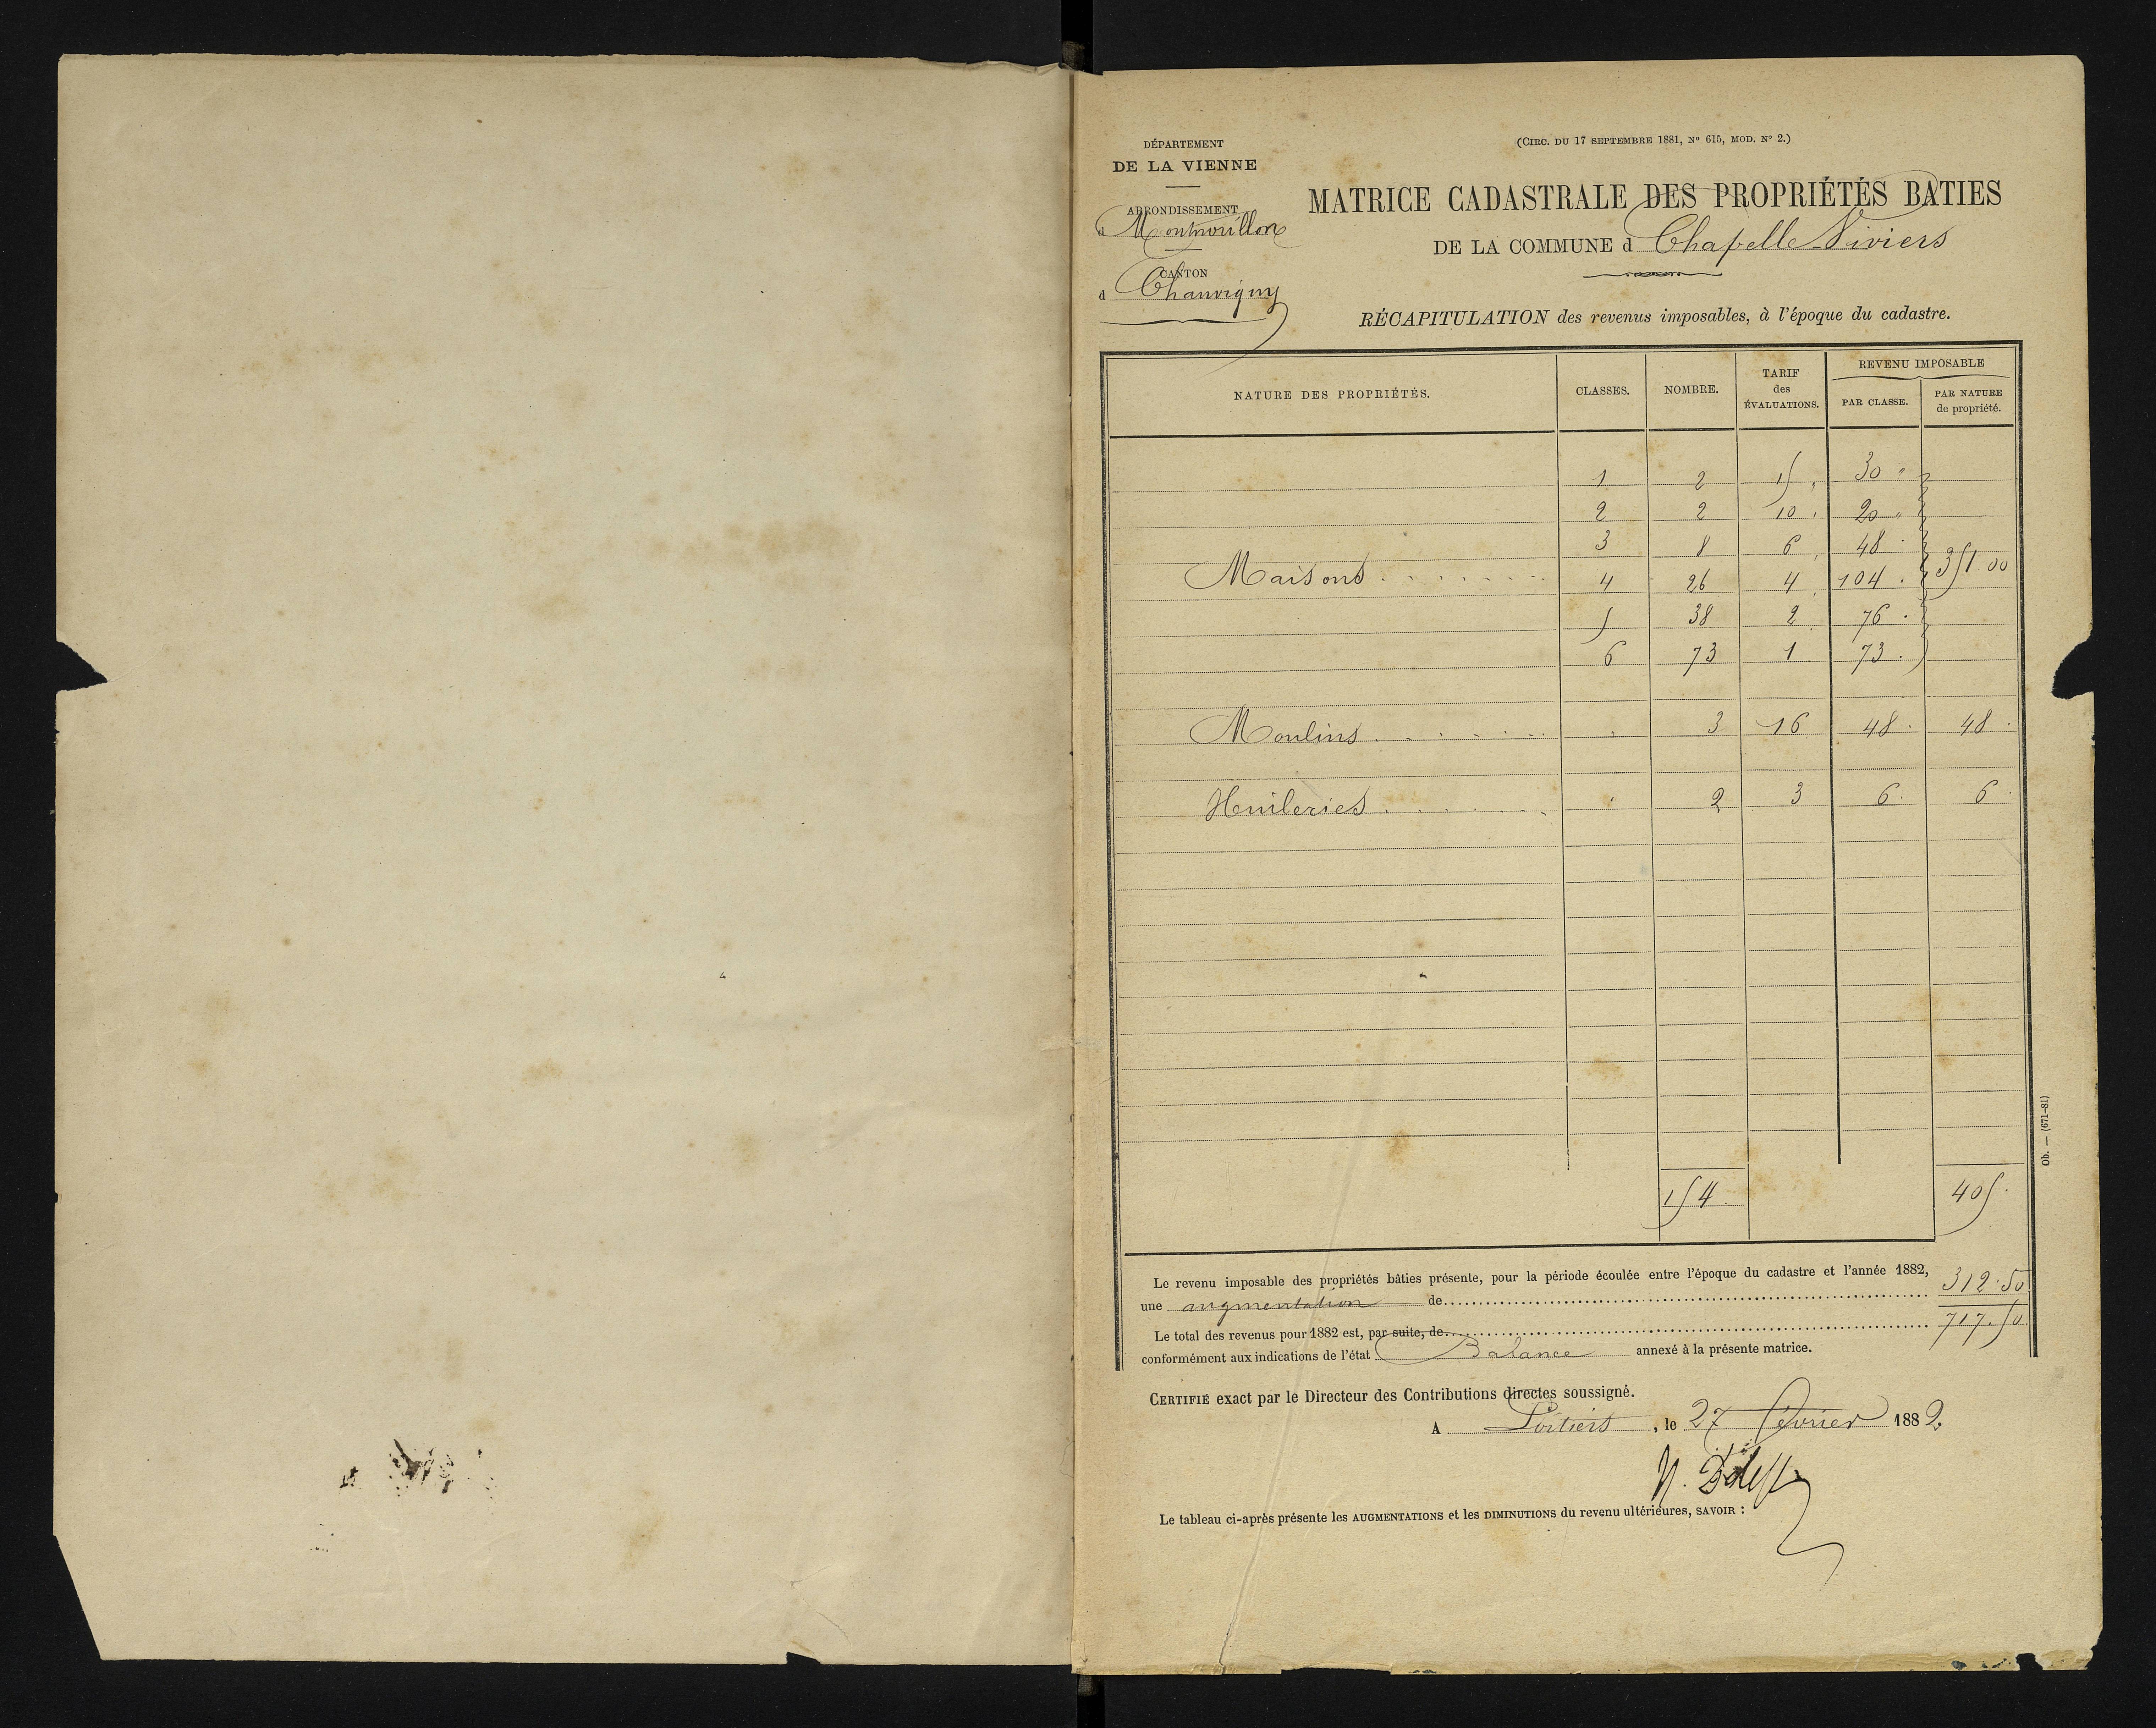 DÉPARTEMENT
DE LA VIENNE
ARRONDISSEMENT
d Montmorillon
CANTON
d Chauvigny
(CIRC. DU 17 SEPTEMBRE 1881, N° 615, MOD. N° 2.)
MATRICE CADASTRALE DES PROPRIÉTÉS BATIES
DE LA COMMUNE d Chapelle Viviers
RÉCAPITULATION des revenus imposables, à l'époque du cadastre.
NATURE DES PROPRIÉTÉS. CLASSES. NOMBRE. TARIF des ÉVALUATIONS. REVENU IMPOSABLE PAR CLASSE. PAR NATURE de propriété.
1 2 15 30 "
2 2 10 20 "
3 8 6 48
Maisons 4 26 4 104 351.00
5 38 2 76
6 73 1 73
Moulins 3 16 48 48
Huileries 2 3 6 6
154 405
Le revenu imposable des propriétés bâties présente, pour la période écoulée entre l'époque du cadastre et l'année 1882,
une augmentation de 312.50
Le total des revenus pour 1882 est, par suite, de 717.50
conformément aux indications de l'état Balance annexé à la présente matrice.
CERTIFIÉ exact par le Directeur des Contributions directes soussigné.
A Poitiers, le 27 février 1882.
Le tableau ci-après présente les AUGMENTATIONS et les DIMINUTIONS du revenu ultérieures, SAVOIR :
Ob. — (671-81)